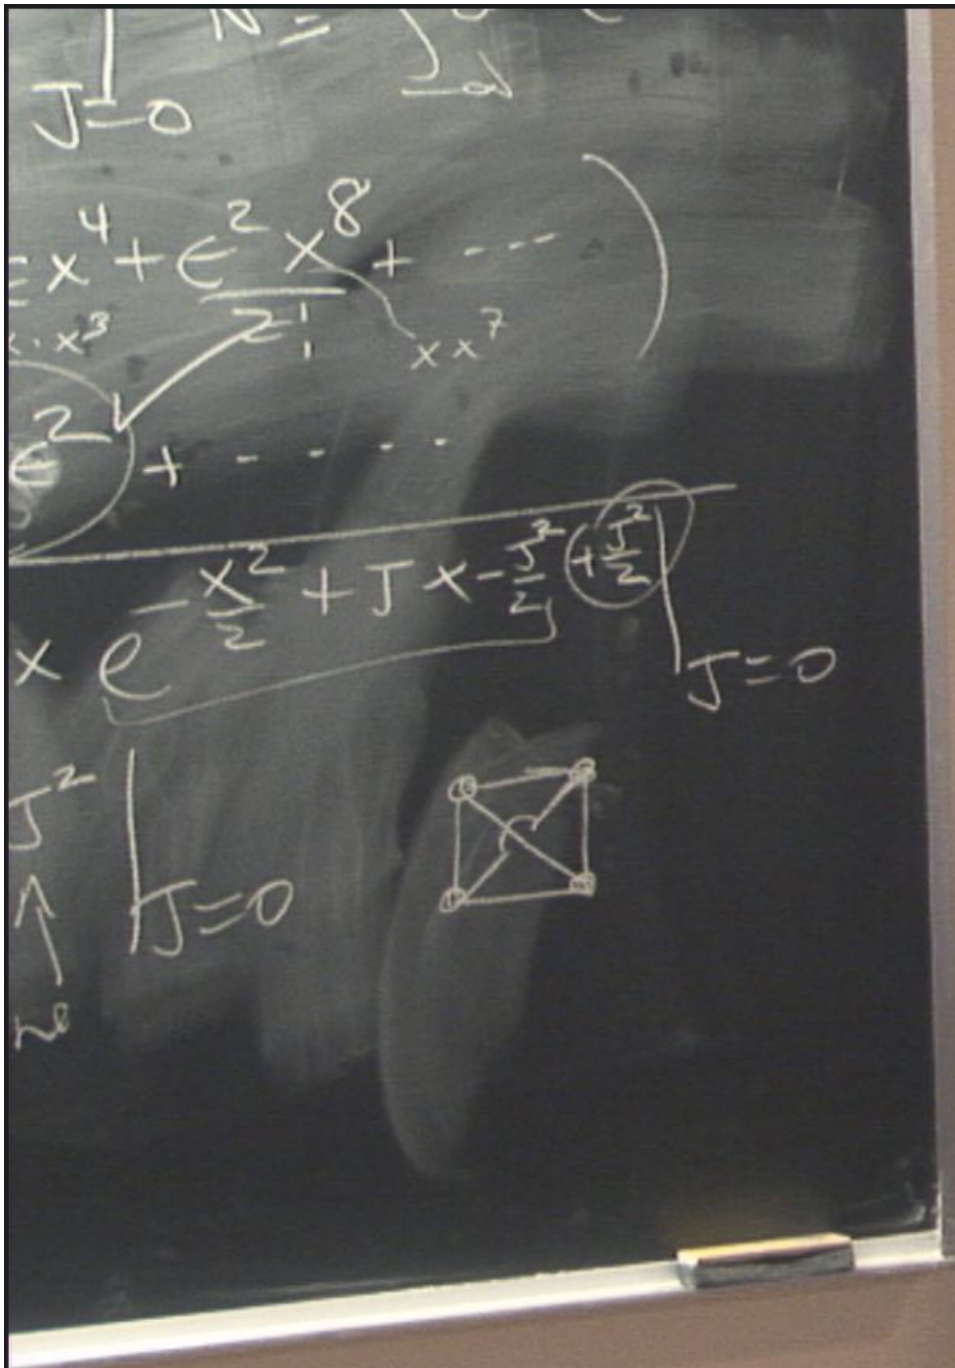 J=0
x⁴ + ϵ² x⁸ / 2! + ----
x · x³
x x⁷
ϵ² + - - - -
x e^{-x²/2 + Jx - J²/2 + J²/2} |_{J=0}
J² |_{J=0}